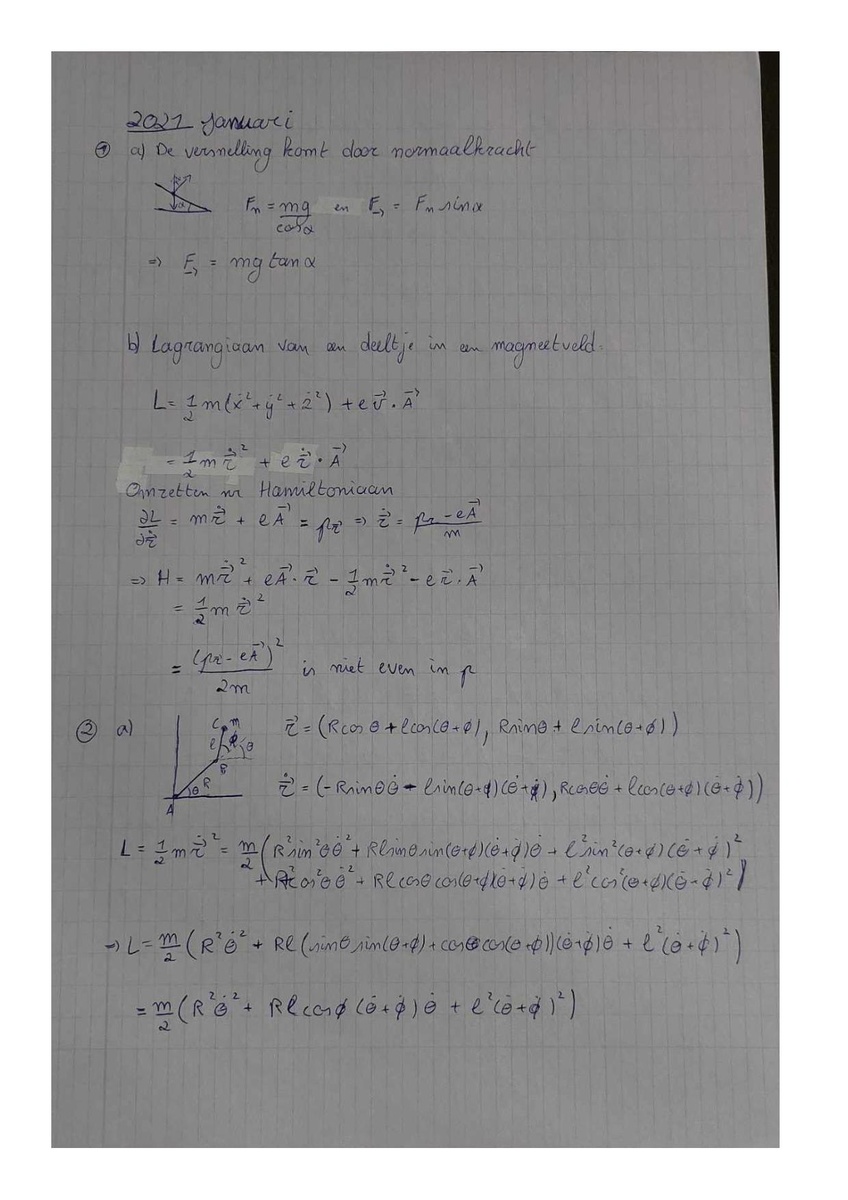 2021 Januari
① a) De versnelling komt door normaalkracht
α
Fₙ = mg/cosα en F→ = Fₙ sinα
=> F→ = mg tanα
b) Lagrangiaan van een deeltje in een magneetveld.
L = 1/2 m(ẋ² + ẏ² + ż²) + e v⃗ · A⃗
= 1/2 m ṙ⃗² + e ṙ⃗ · A⃗
Omzetten nr Hamiltoniaan
∂L/∂ṙ⃗ = mṙ⃗ + eA⃗ = p_r⃗ => ṙ⃗ = (p_r - eA⃗)/m
=> H = mṙ⃗² + eA⃗ · ṙ⃗ - 1/2 mṙ⃗² - e ṙ⃗ · A⃗
= 1/2 m ṙ⃗²
= (p_r - eA⃗)²/2m is niet even in p
② a) r⃗ = (Rcosθ + lcos(θ+ϕ), Rsinθ + lsin(θ+ϕ))
C m
l ϕ θ
B
R
θ
A
ṙ⃗ = (-Rsinθθ̇ - lsin(θ+ϕ)(θ̇+ϕ̇), Rcosθθ̇ + lcos(θ+ϕ)(θ̇+ϕ̇))
L = 1/2 m ṙ⃗² = m/2 (R²sin²θθ̇² + Rlsinθsin(θ+ϕ)(θ̇+ϕ̇)θ̇ + l²sin²(θ+ϕ)(θ̇+ϕ̇)²
+ R²cos²θθ̇² + Rlcosθcos(θ+ϕ)(θ̇+ϕ̇)θ̇ + l²cos²(θ+ϕ)(θ̇-ϕ̇)²)
→ L = m/2 (R²θ̇² + Rl(sinθsin(θ+ϕ) + cosθcos(θ+ϕ))(θ̇+ϕ̇)θ̇ + l²(θ̇+ϕ̇)²)
= m/2 (R²θ̇² + Rlcosϕ(θ̇+ϕ̇)θ̇ + l²(θ̇+ϕ̇)²)